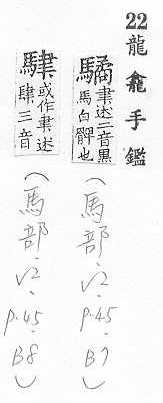 22 龍龕手鑑
驈 聿述二音黑
馬白髀也
(馬部.V2.P.45.B7)
或作聿述
肆三音
(馬部.V2.P.45.B8)